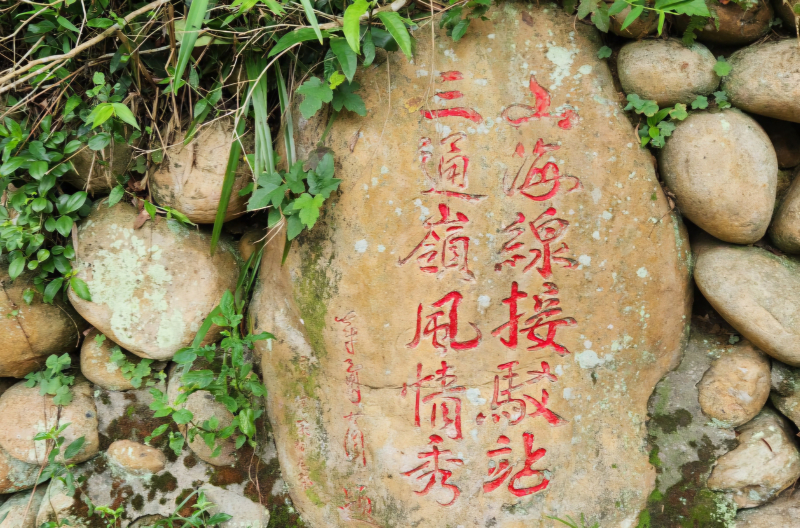 山海線接駁站
三通嶺風情秀